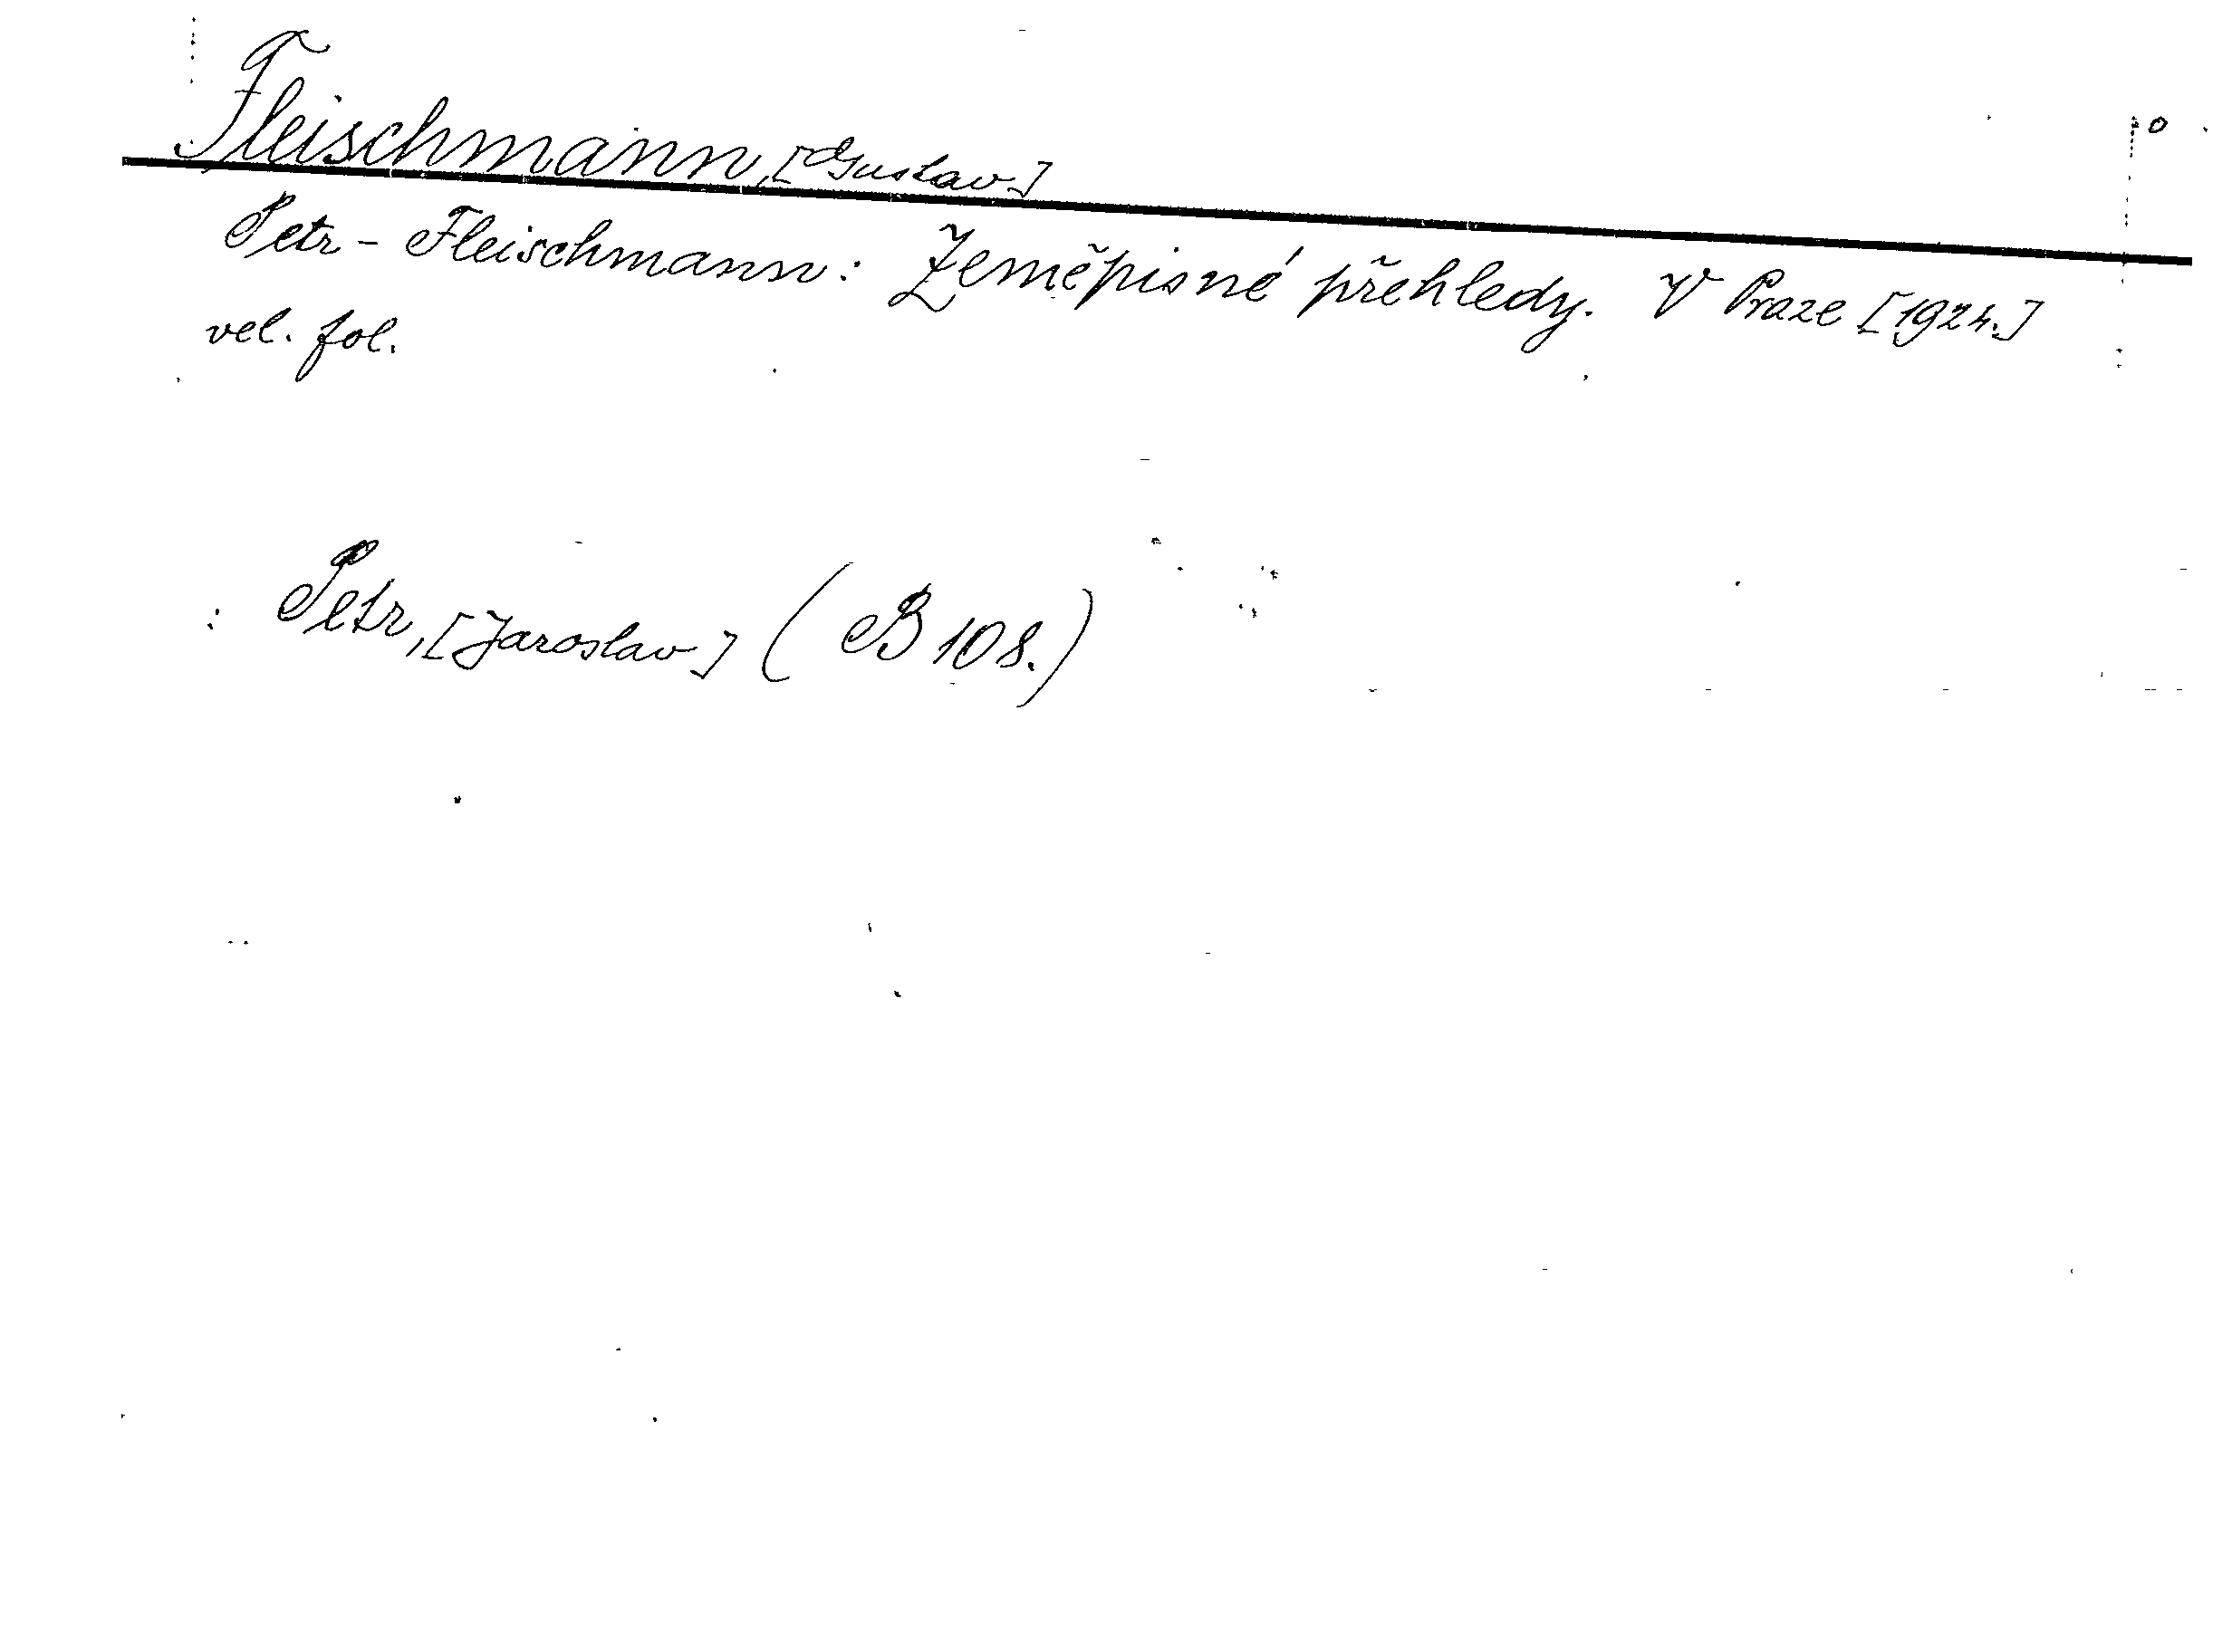 Fleischmann, [Gustav]
Petr - Fleischmann: Zeměpisné přehledy. V Praze [1924.]
vel. fol.
Petr, [Jaroslav] (B 108.)